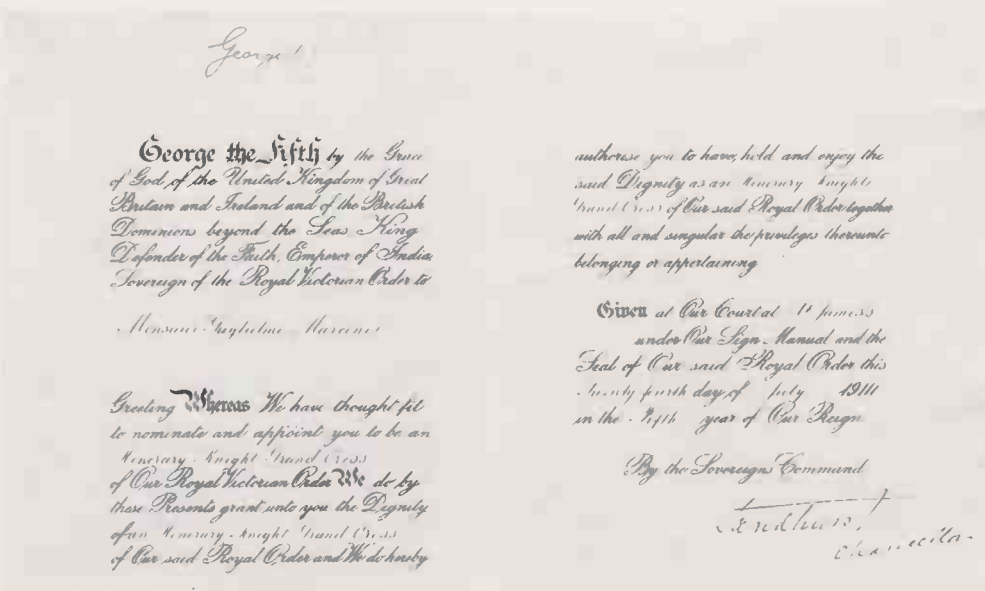 George
George the Fifth by the Grace
of God, of the United Kingdom of Great
Britain and Ireland and of the British
Dominions beyond the Seas King
Defender of the Faith, Emperor of India
Sovereign of the Royal Victorian Order to
Guglielmo Marconi
Greeting Whereas We have thought fit
to nominate and appoint you to be an
Honorary Knight Grand Cross
of Our Royal Victorian Order We do by
these Presents grant unto you the Dignity
of an Honorary Knight Grand Cross
of Our said Royal Order and We do hereby
authorise you to have, hold and enjoy the
said Dignity as an Honorary Knight
Grand Cross of Our said Royal Order together
with all and singular the privileges thereunto
belonging or appertaining
Given at Our Court at St James's
under Our Sign Manual and the
Seal of Our said Royal Order this
Twenty fourth day of July 1914
in the Fifth year of Our Reign
By the Sovereign's Command
Chancellor